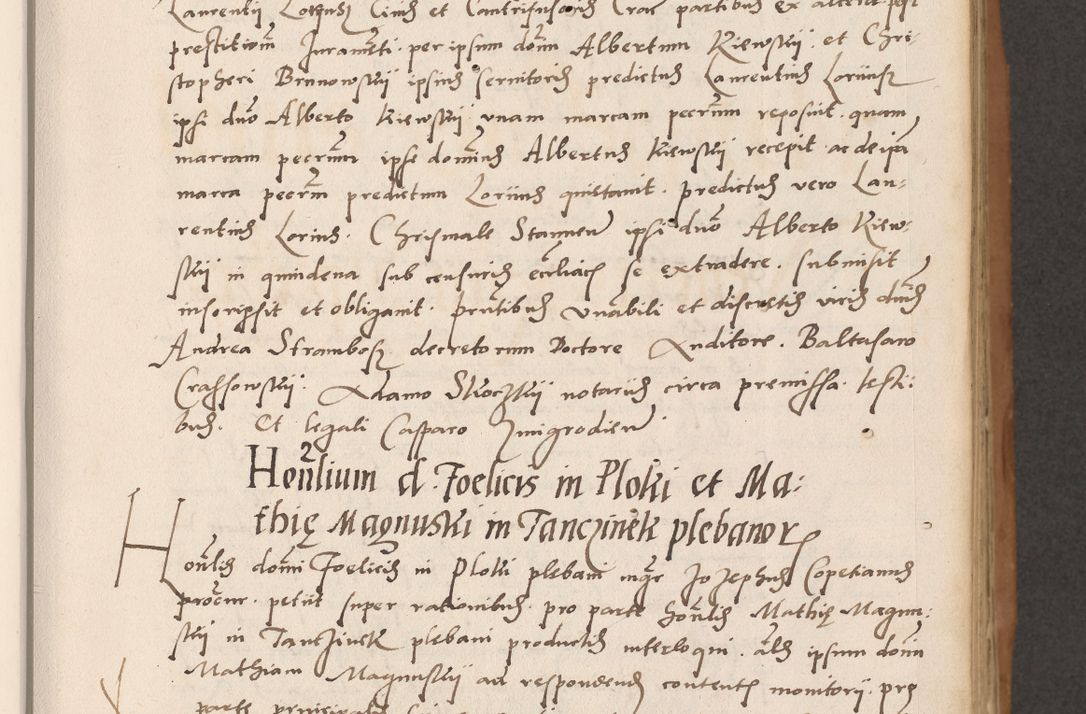 Laurentii Lorins Civis et Cantrifusoris Crac partibus ex altera post
prestitum Juramenti per ipsum dominum Albertum Kiewskij et Chri-
stopheri Brunowskij ipsius servitoris predictus Laurentius Loriius
ipsi duo Alberto Kiewskij unam marcam pecrum reposuit quam
marcam pecrum ipse dominus Albertus Kiewskij recepit ac de ipsa
marca pecrum predictum Loriius quietavit. predictus vero Lau-
rentius Lorius. Chrismale Stanneum ipsi duo Alberto Kiew-
skij in quindena sub censuris eccliacis se extradere. submisit
inscripsit et obligavit. prntibus vnabili et discretis viris dnis
Andrea Strambosz decretorum Doctore Auditore. Baltasaro
Crassowskij. Adamo Skoczkij notariis circa premissa testi:
bus. Et legali Casparo Zmigrodien
Honlium d. Foelicis in Ploki et Ma:
thię Magnuski in Tanczinek plebanor
Honlis domini Foelicis in Ploki plebani mgr Jozephus Copetianus
procur. petiit super rationibus pro parte honlis Mathię Magnu:
skij in Tanczinek plebani productis interloqui. als ipsum domini
Mathiam Magnuskij ad respondendum contentis monitorii. pro
parte principalis